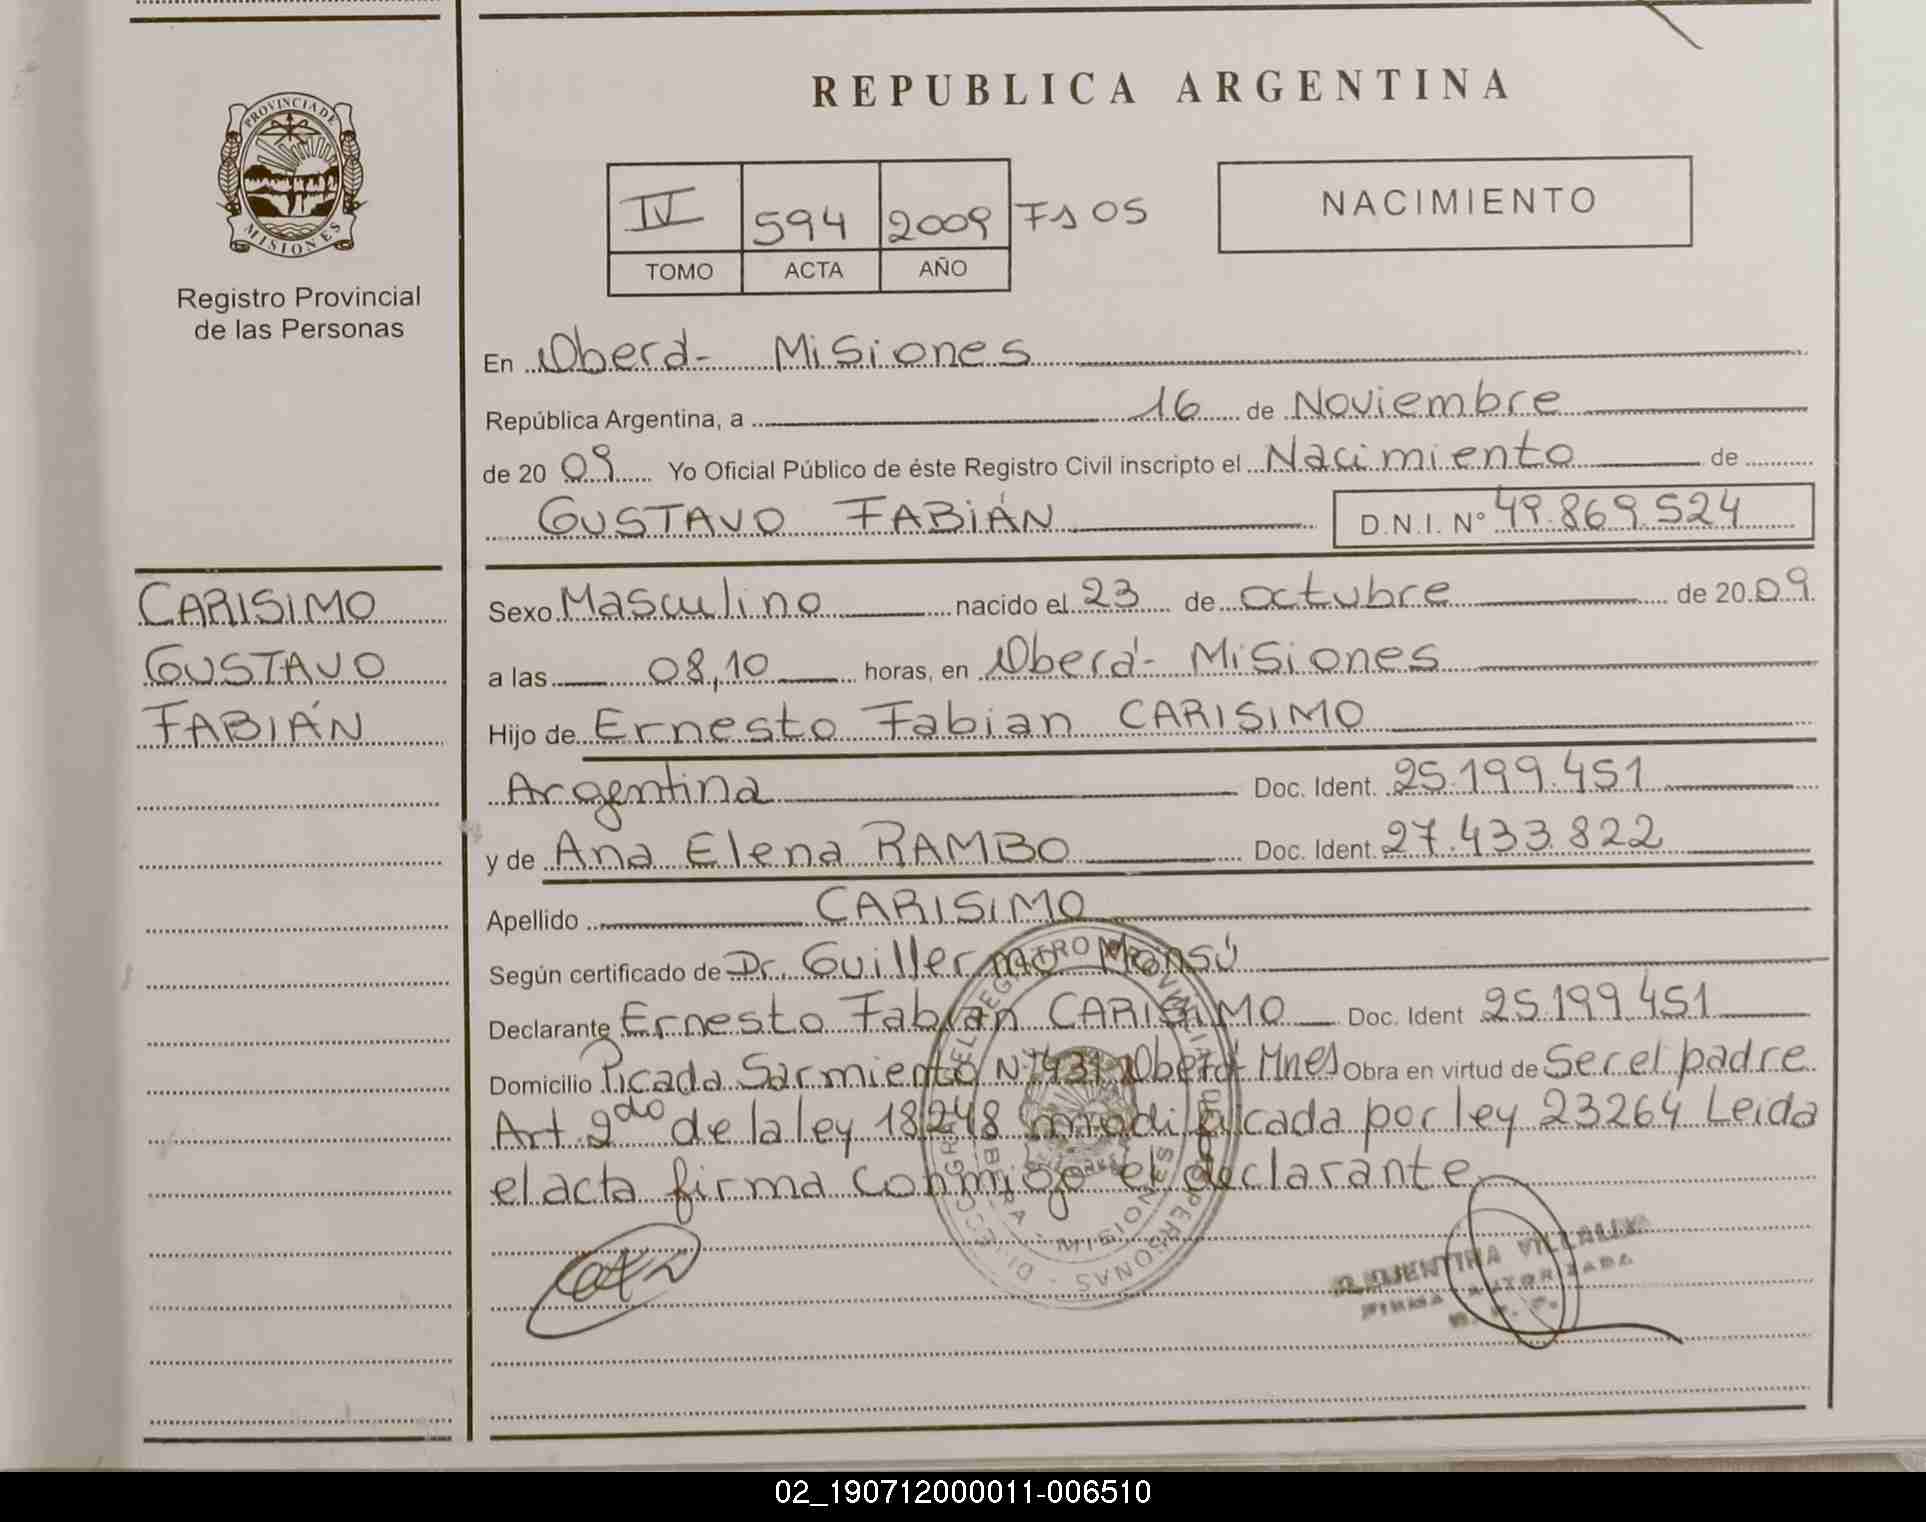 REPUBLICA ARGENTINA
PROVINCIA DE
MISIONES
Registro Provincial
de las Personas
IV 594 2009 Fs 05
TOMO ACTA AÑO
NACIMIENTO
En Oberá- Misiones
República Argentina, a 16 de Noviembre
de 20 09 Yo Oficial Público de éste Registro Civil inscripto el Nacimiento de
GUSTAVO FABIÁN D.N.I. Nº 49.869.524
CARISIMO
GUSTAVO
FABIÁN
Sexo Masculino nacido el 23 de octubre de 20 09
a las 08,10 horas, en Oberá- Misiones
Hijo de Ernesto Fabian CARISIMO
Argentina Doc. Ident. 25.199.451
y de Ana Elena RAMBO Doc. Ident. 27.433.822
Apellido CARISIMO
Según certificado de Dr. Guillermo
Declarante Ernesto Fabian CARISIMO Doc. Ident 25.199.451
Domicilio Picada Sarmiento Oberá Mnes Obra en virtud de Ser el padre
Art 2do de la ley 18248 modificada por ley 23264 Leida
el acta firma conmigo el declarante
VILLALBA
FIRMA AUTORIZADA
02_190712000011-006510